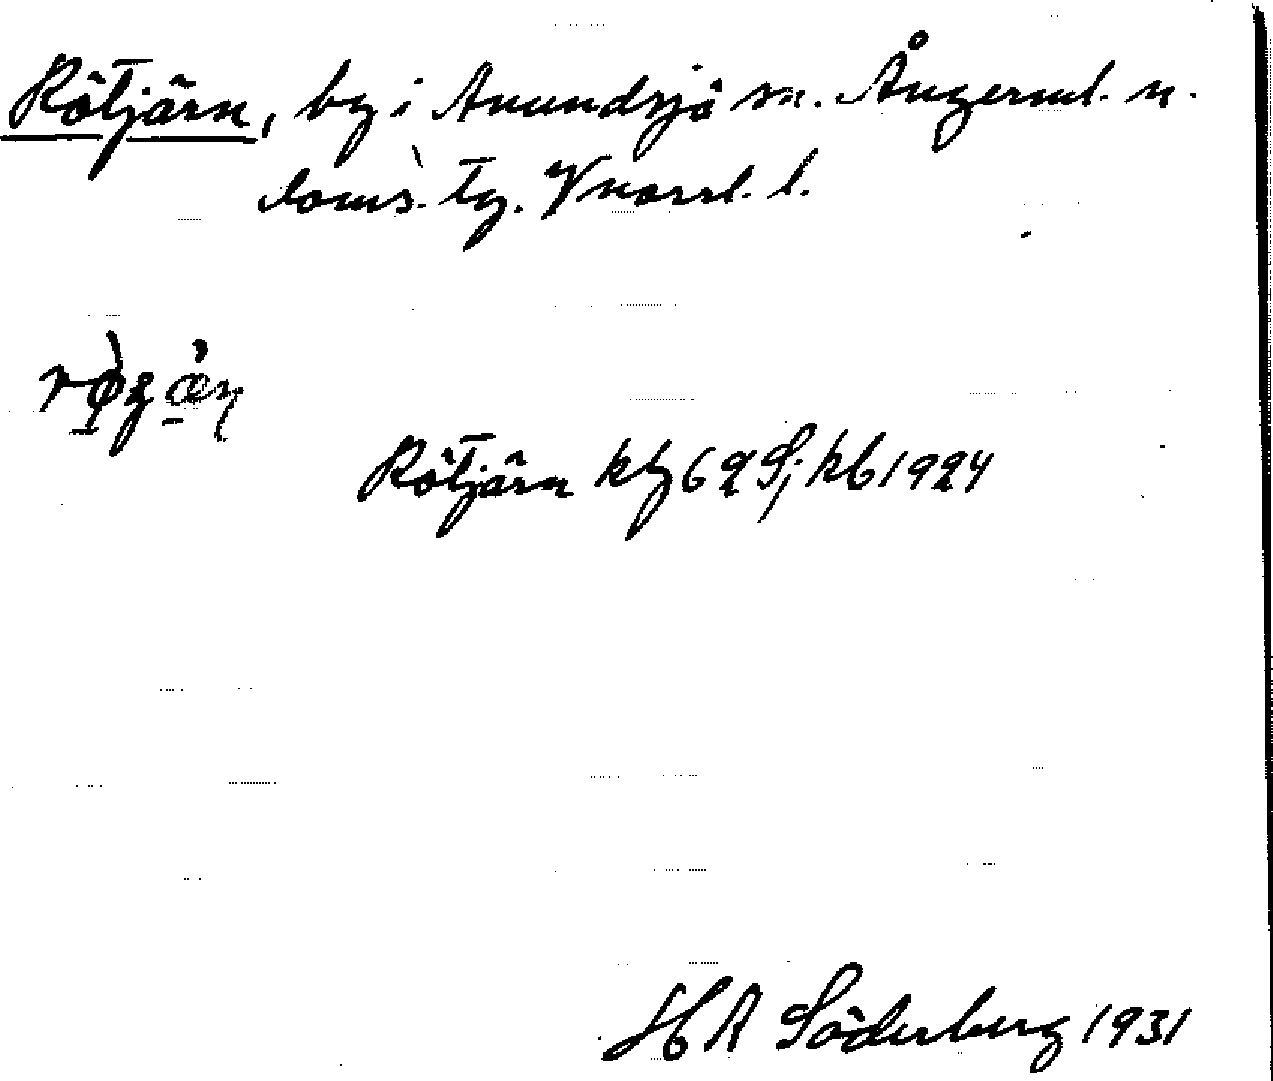 Rötjärn, by i Anundsjö sn. Ångerml. n.
doms. tg. Vnorrl. l.
Rötjärn kbg 62 S; kb 1924
HA Söderberg 1931